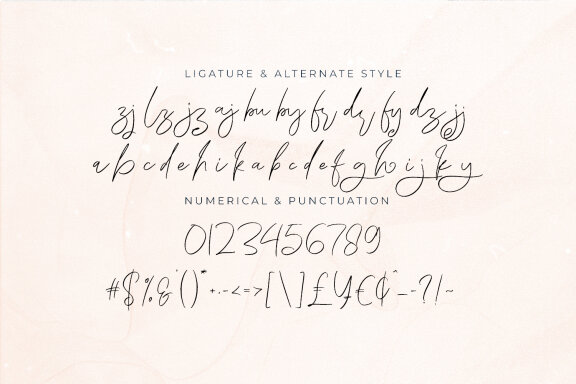 LIGATURE & ALTERNATE STYLE
zj lz jz aj bu by fr dr fy dz jj
a b c d e h i k a b c d e f g h i j k y
NUMERICAL & PUNCTUATION
0123456789
#$%&'()*+,-<=>[\]£¥€¢^_-?!~